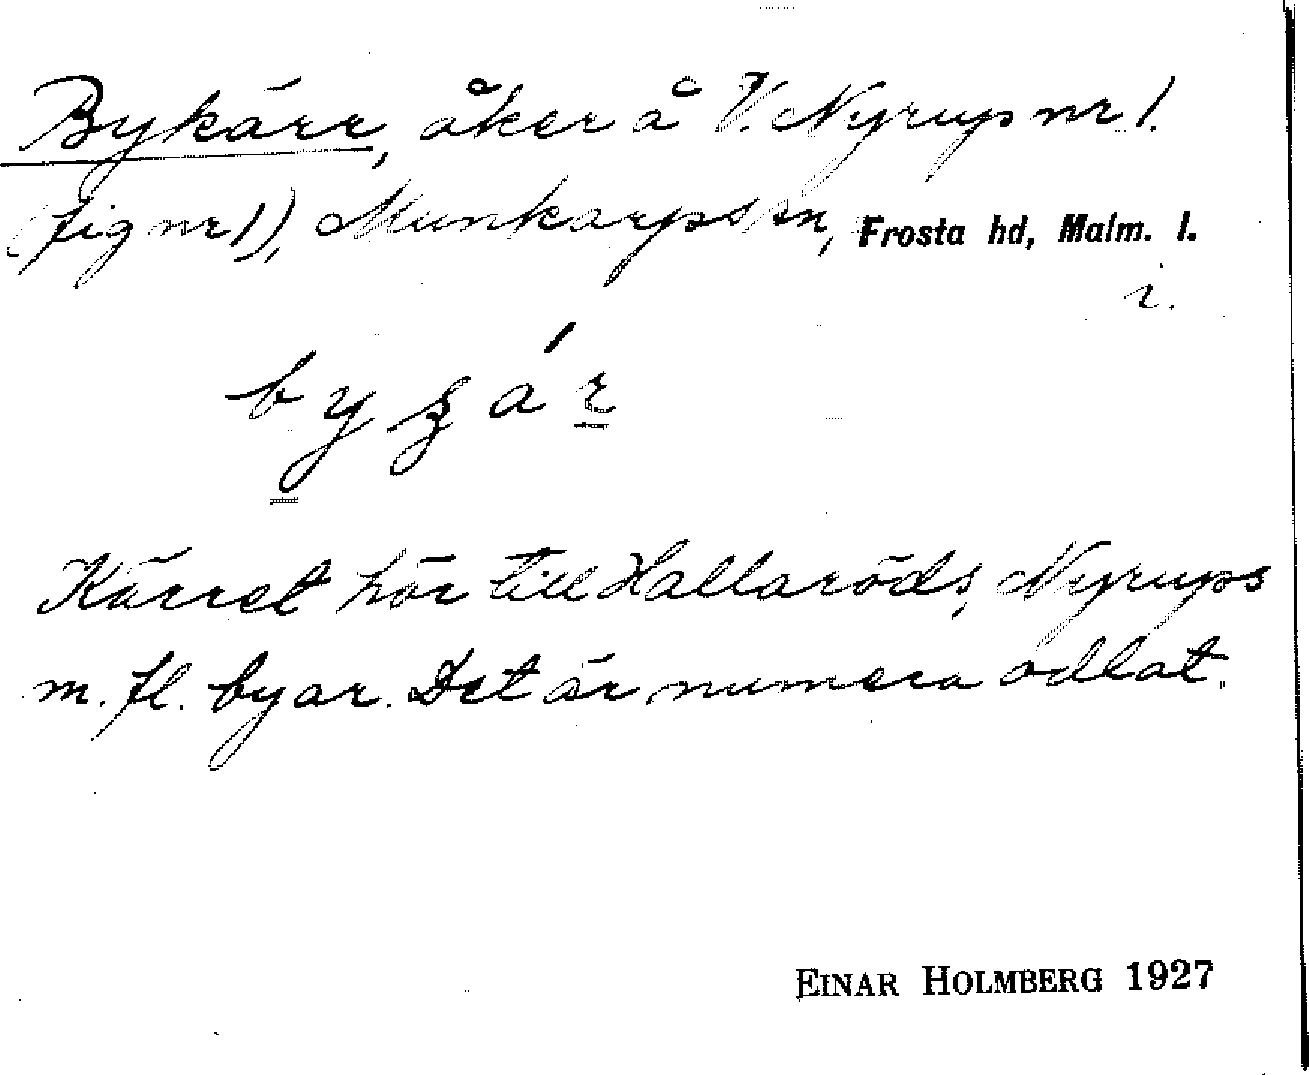 Bykärr, åker å V. Nyrup nr 1.
(fig nr 1), Munkarps sn, Frosta hd, Malm. l.
i.
Kärret hör till Hallaröds, Nyrups
m. fl. byar. Det är numera odlat.
EINAR HOLMBERG 1927